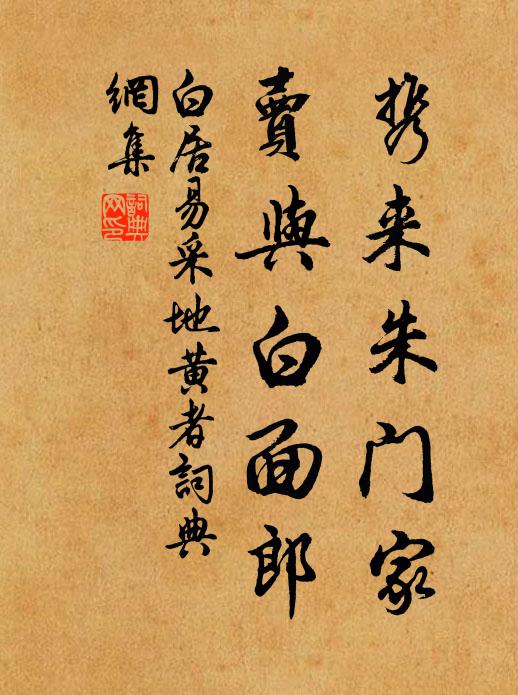 携来朱门家
賣與白面郎
白居易采地黄者詞典
網集
詞典
网印